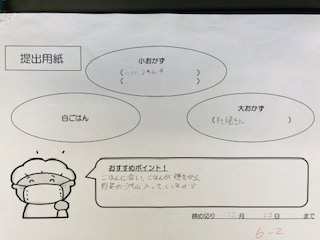 提出用紙
小おかず
(
)
(
)
白ごはん
大おかず
(
)
おすすめポイント!
ごはんに合い、ごはんが進むから
野菜が 入っているから
締め切り 12月 25日 まで
6-2